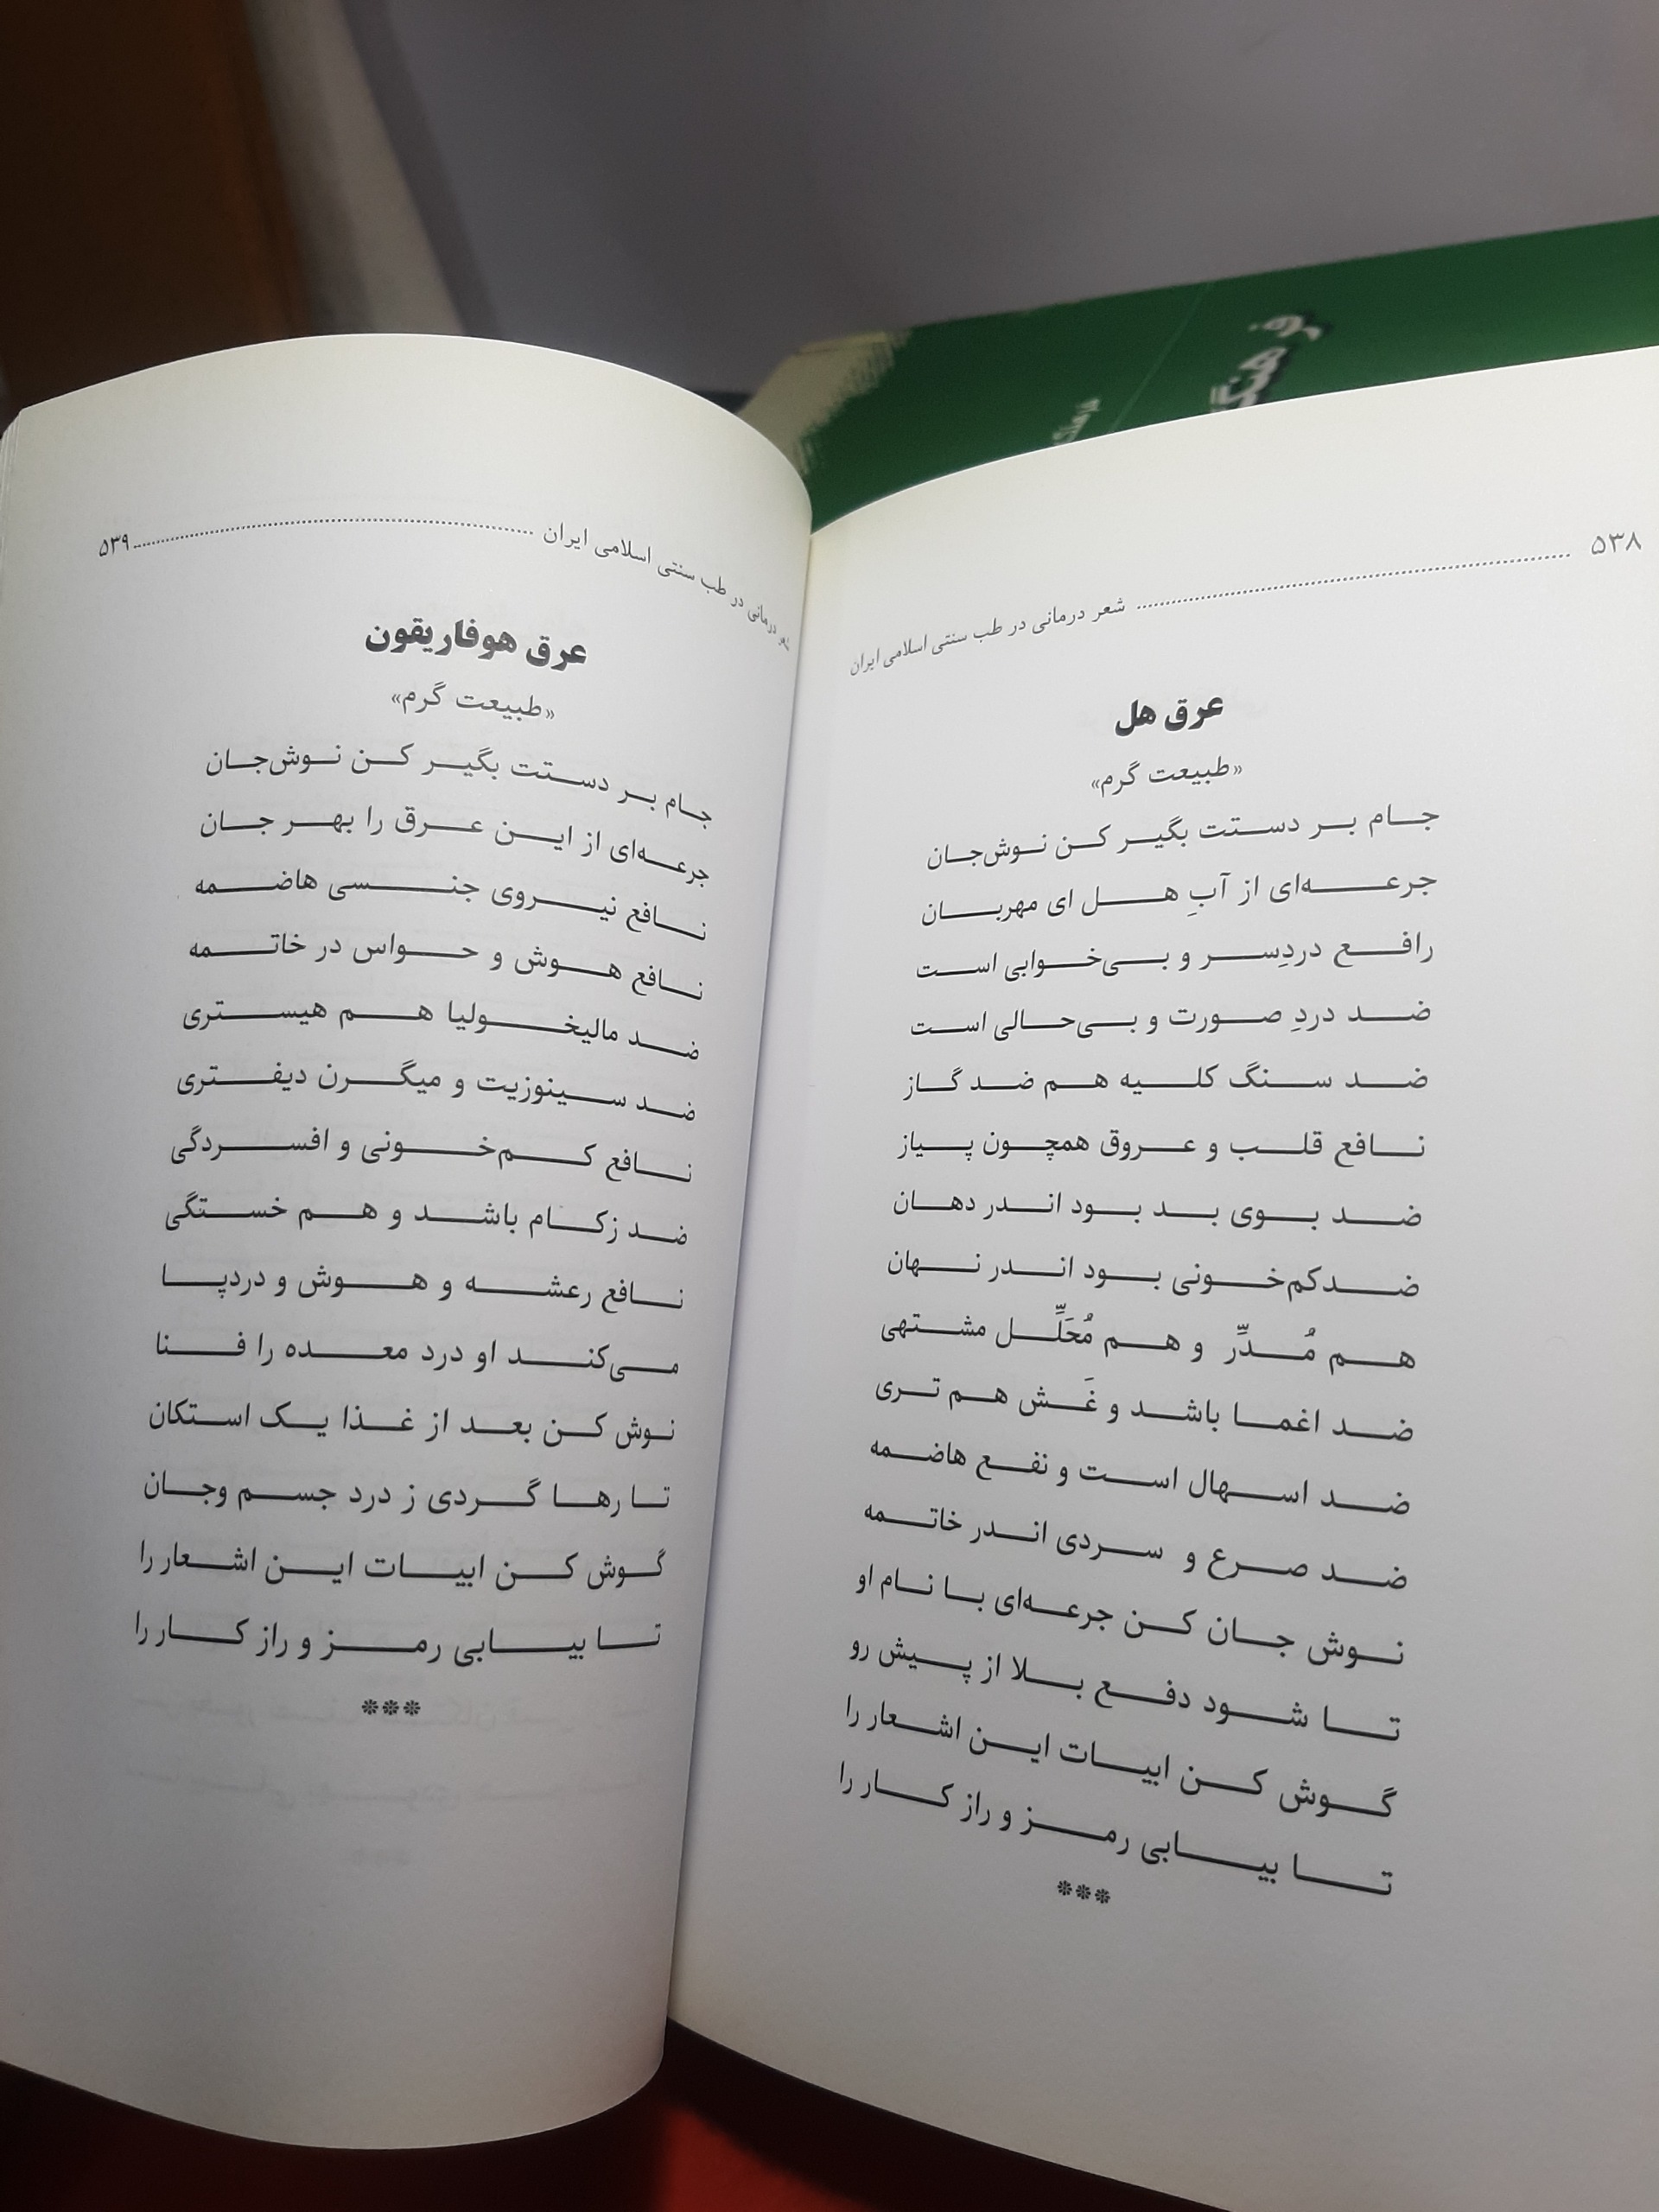 فرهنگ
۵۳۸ شعر درمانی در طب سنتی اسلامی ایران
عرق هل
«طبیعت گرم»
جام بر دستت بگیر کن نوش‌جان
جرعه‌ای از آبِ هل ای مهربان
رافع دردِسر و بی‌خوابی است
ضد دردِ صورت و بی‌حالی است
ضد سنگ کلیه هم ضد گاز
نافع قلب و عروق همچون پیاز
ضد بوی بد بود اندر دهان
ضدکم‌خونی بود اندر نهان
هم مُدرِّ و هم مُحَلِّل مشتهی
ضد اغما باشد و غَش هم تری
ضد اسهال است و نفع هاضمه
ضد صرع و سردی اندر خاتمه
نوش جان کن جرعه‌ای با نام او
تا شود دفع بلا از پیش رو
گوش کن ابیات این اشعار را
تا بیابی رمز و راز کار را
***
شعر درمانی در طب سنتی اسلامی ایران ۵۳۹
عرق هوفاریقون
«طبیعت گرم»
جام بر دستت بگیر کن نوش‌جان
جرعه‌ای از این عرق را بهر جان
نافع نیروی جنسی هاضمه
نافع هوش و حواس در خاتمه
ضد مالیخولیا هم هیستری
ضد سینوزیت و میگرن دیفتری
نافع کم‌خونی و افسردگی
ضد زکام باشد و هم خستگی
نافع رعشه و هوش و دردپا
می‌کند او درد معده را فنا
نوش کن بعد از غذا یک استکان
تا رها گردی ز درد جسم وجان
گوش کن ابیات این اشعار را
تا بیابی رمز و راز کار را
***